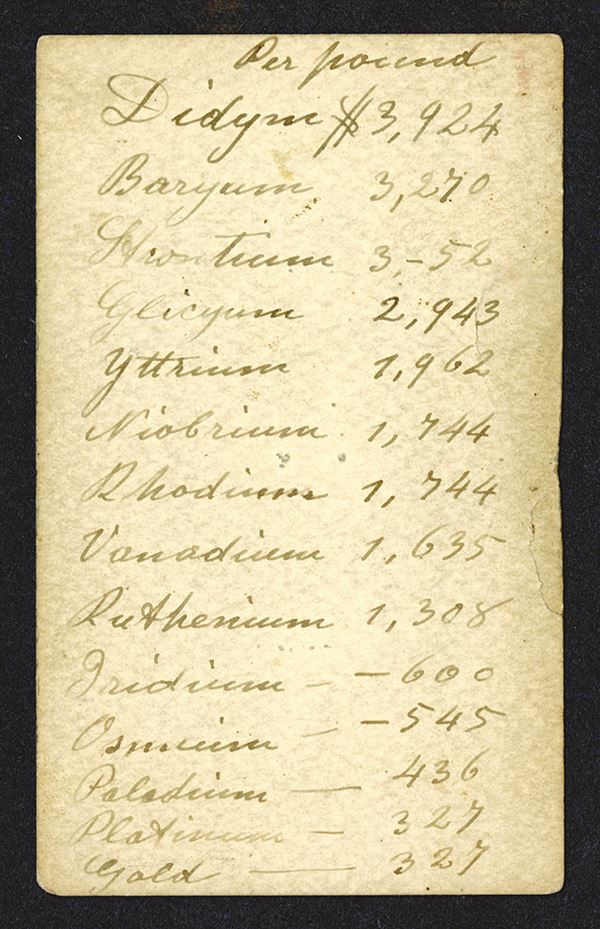 Per pound
Didym $3,924
Baryum 3,270
Strontium 3,-52
Glicyum 2,943
Yttrium 1,962
Niobrium 1,744
Rhodium 1,744
Vanadium 1,635
Ruthenium 1,308
Iridium — — 600
Osmium — — 545
Paladium — 436
Platinum — 327
Gold — 327